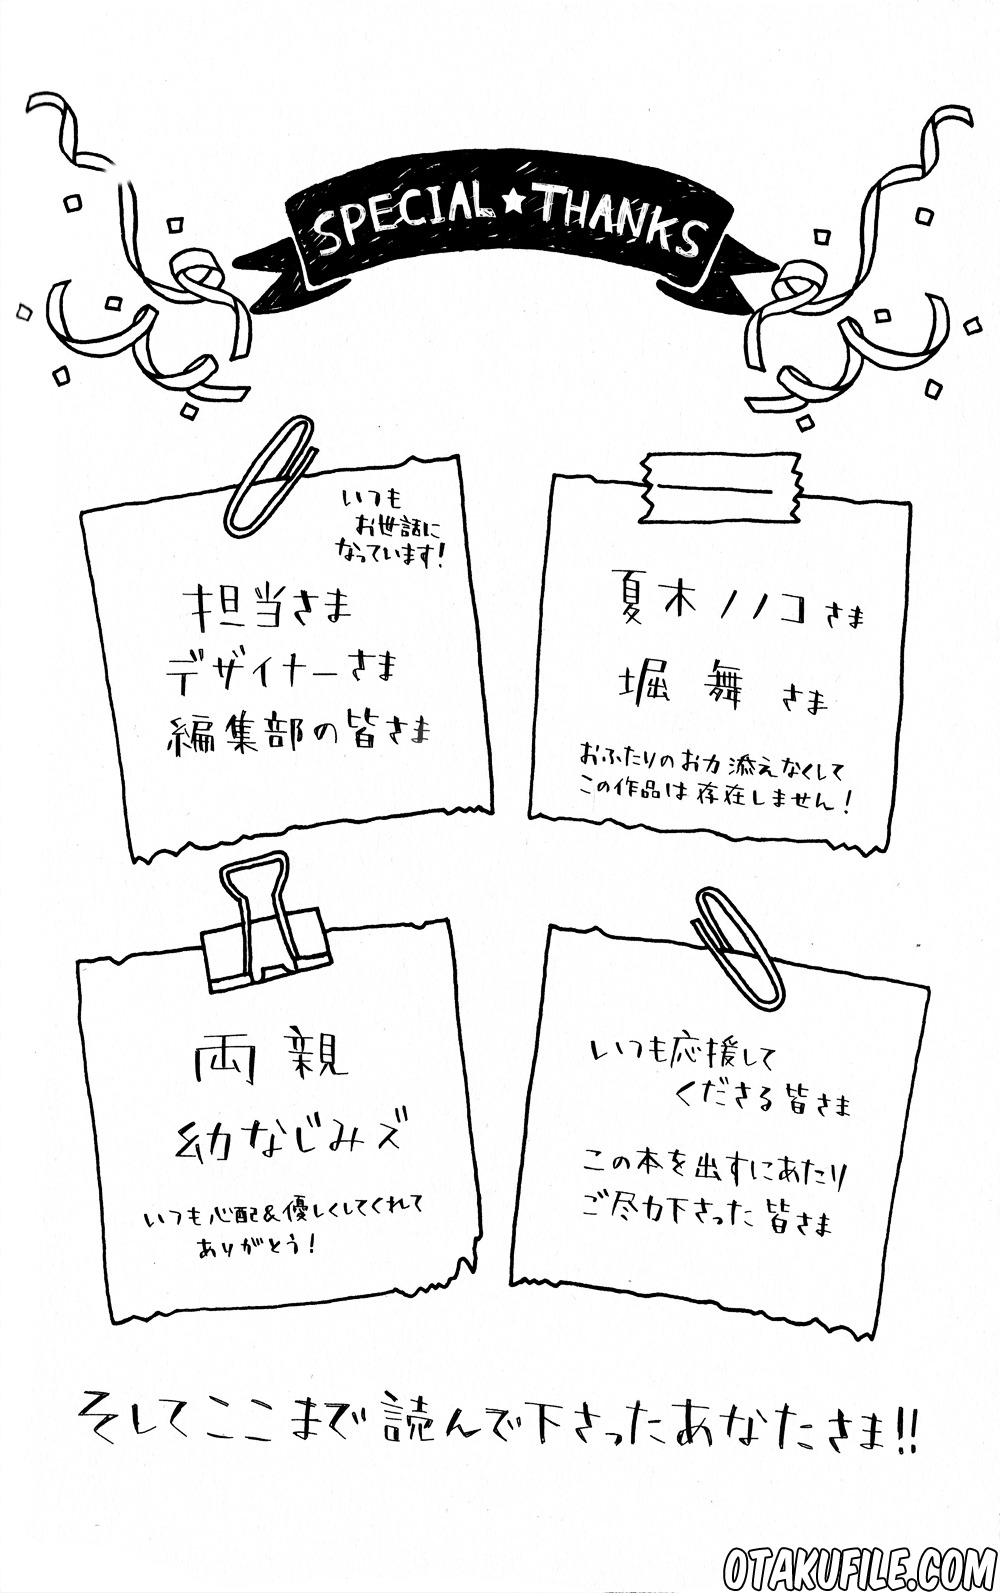 SPECIAL★THANKS
いつも
お世話に
なっています!
担当さま
デザイナーさま
編集部の皆さま
夏木ノノコさま
堀 舞 さま
おふたりのお力添えなくして
この作品は存在しません!
両親
幼なじみズ
いつも心配&優しくしてくれて
ありがとう!
いつも応援して
くださる皆さま
この本を出すにあたり
ご尽力下さった皆さま
そしてここまで読んで下さったあなたさま!!
OTAKUFILE.COM